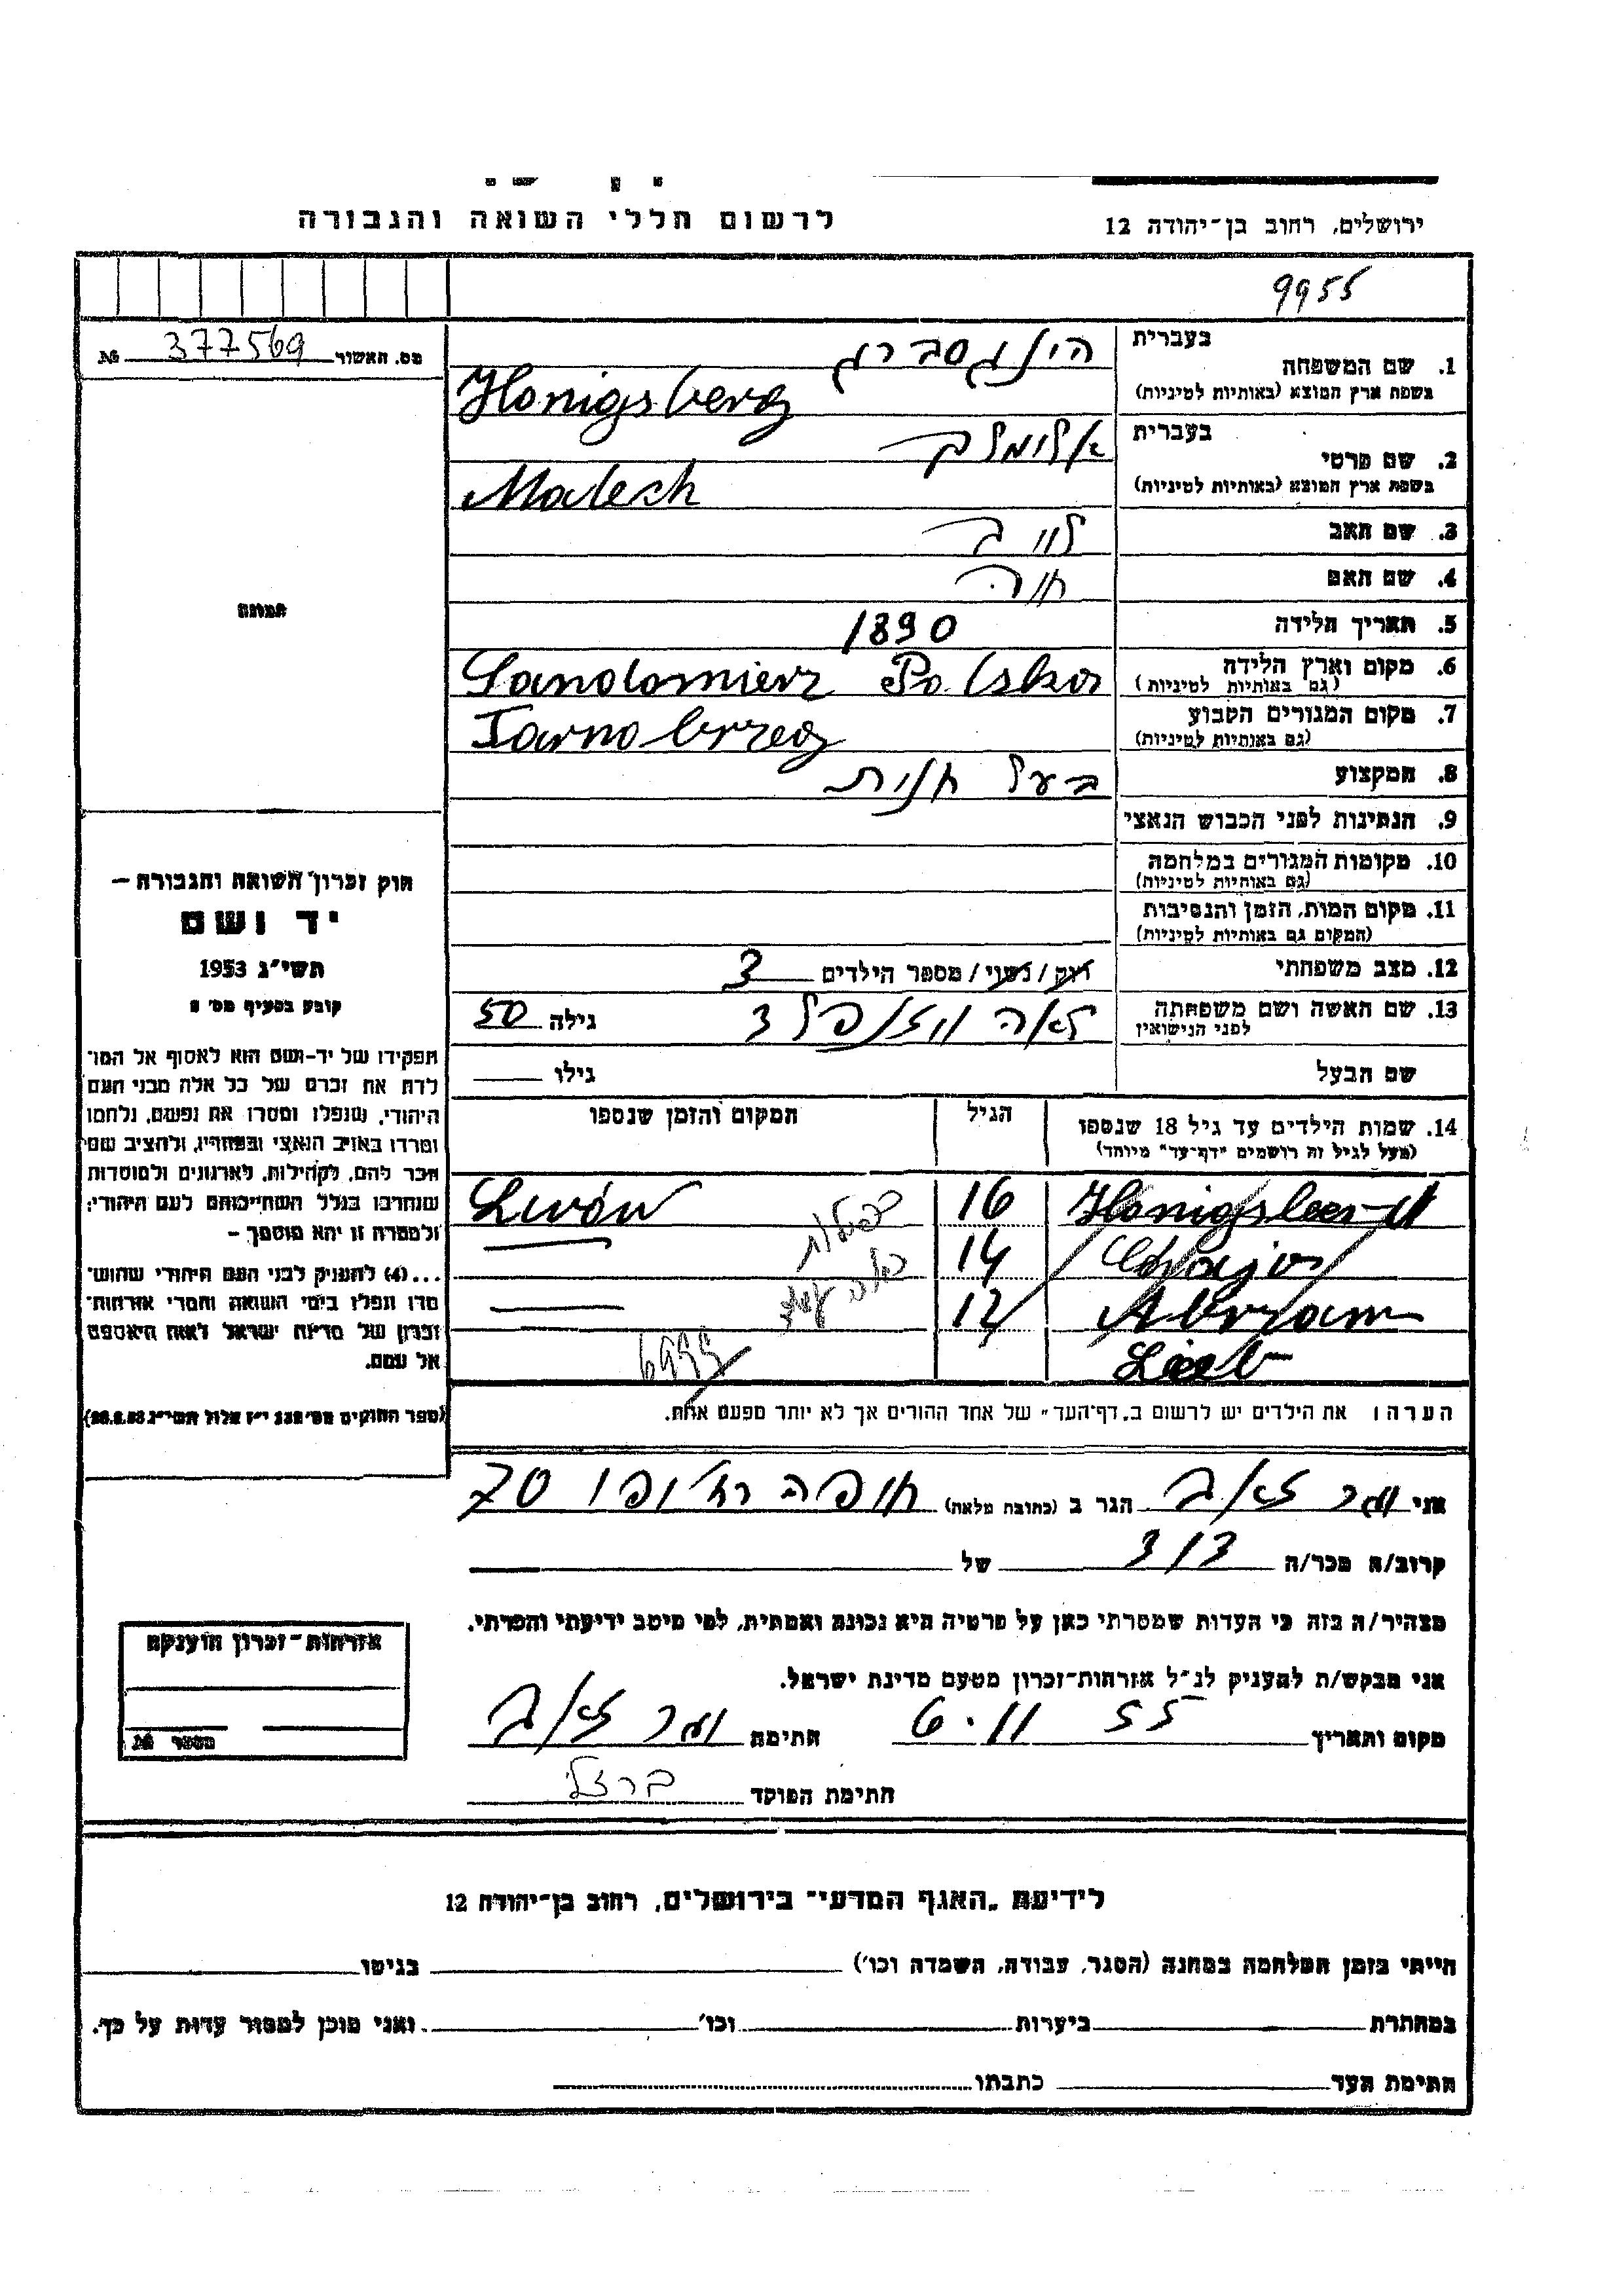 לרשום חללי השואה והגבורה
ירושלים, רחוב בן־יהודה 12
9955
מס. האשור 377569 №
1. שם המשפחה
בעברית
הינגסברג
בשפת ארץ המוצא (באותיות לטיניות)
Honigsberg
2. שם פרטי
בעברית
אלימלך
בשפת ארץ המוצא (באותיות לטיניות)
Malech
3. שם האב
לייב
4. שם האם
חוה
5. תאריך הלידה 1890
6. מקום וארץ הלידה
(גם באותיות לטיניות)
Sandomierz Polska
7. מקום המגורים הקבוע
(גם באותיות לטיניות)
Tarnobrzeg
8. המקצוע
בעל חנות
9. הנתינות לפני הכבוש הנאצי
10. מקומות המגורים במלחמה
(גם באותיות לטיניות)
11. מקום המות, הזמן והנסיבות
(המקום גם באותיות לטיניות)
12. מצב משפחתי
רוק / נשוי / מספר הילדים 3
13. שם האשה ושם משפחתה
לפני הנישואין
לאה
גילה 50
שם הבעל
גילו
14. שמות הילדים עד גיל 18 שנספו
(מעל לגיל זה רושמים "דף־עד" מיוחד)
הגיל
המקום והזמן שנספו
Honigsber 16 Lwów
Chaja 14
Abram 12
Lieb
6999
הערה: את הילדים יש לרשום ב„דף־העד" של אחד ההורים אך לא יותר מפעם אחת.
תמונה
חוק זכרון השואה והגבורה –
יד ושם
תשי"ג 1953
קובע בסעיף מס' 2
תפקידו של יד-ושם הוא לאסוף אל המו־
לדת את זכרם של כל אלה מבני העם
היהודי, שנפלו ומסרו את נפשם, נלחמו
ומרדו באויב הנאצי ובעוזריו, ולהציב שם
וזכר להם, לקהילות, לארגונים ולמוסדות
שנחרבו בגלל השתייכותם לעם היהודי;
ולמטרה זו יהא מוסמך –
...(4) להעניק לבני העם היהודי שהוש־
מדו ונפלו בימי השואה והמרי אזרחות־
זכרון של מדינת ישראל לאות היאספם
אל עמם.
(ספר החוקים מס' 132 י"ז אלול תשי"ג 28.8.53)
אני זאב הגר ב (כתובת מלאה) חיפה 70
קרוב/ה מכר/ה דוד של
מצהיר/ה בזה כי העדות שמסרתי כאן על פרטיה היא נכונה ואמתית, לפי מיטב ידיעתי והכרתי.
אני מבקש/ת להעניק לנ"ל אזרחות־זכרון מטעם מדינת ישראל.
מקום ותאריך 6.11 55 חתימת זאב
חתימת הפוקד ברזלי
אזרחות־זכרון הוענקה
מספר №
לידיעת „האגף המדעי" בירושלים, רחוב בן־יהודה 12
הייתי בזמן המלחמה במחנה (הסגר, עבודה, השמדה וכו') בגיטו
במחתרת ביערות וכו' ואני מוכן למסור עדות על כך.
חתימת העד כתבתו